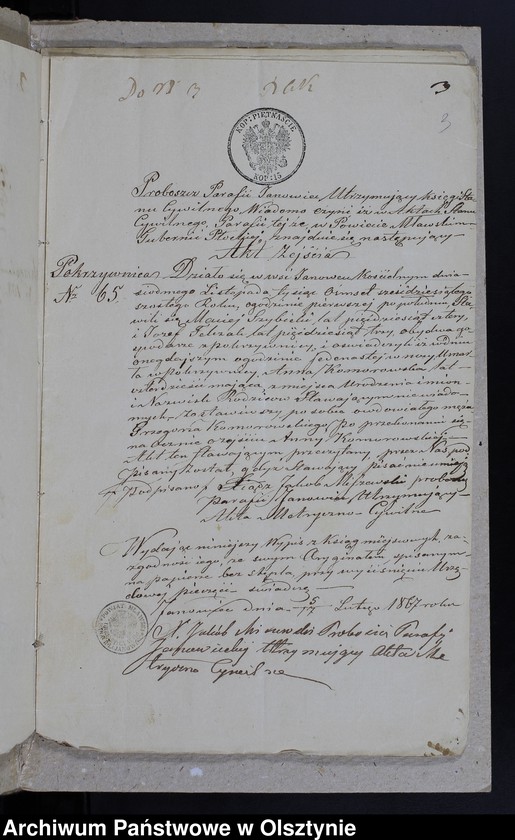 Do № 3
3
3
KOP: PIĘTNAŚCIE
KOP: 15
Proboszcz Parafii Janowiec Utrzymujący księgi Sta
nu Cywilnego Wiadomo czyni iż w Aktach Stanu
Cywilnego, Parafii tej że w Powiecie Mławskim
Gubernii Płockiej, znajduje się następujący
Akt Zejścia
Pokrzywnica Działo się we wsi Janowcu Kościelnym dnia
№ 65. siódmego Listopada tysiąc ośmset sześćdziesiątego
szóstego Roku, o godzinie pierwszej po południu, Sta
wili się Maciej lat pięćdziesiąt cztery,
i Józef lat pięćdziesiąt trzy, obydwa go
spodarze z Pokrzywnicy, i oświadczyli iż w dniu
onegdajszym o godzinie jedenastej w nocy Umar
ła w Pokrzywnicy, Anna Komorowska, lat
czterdzieści mająca, z miejsca Urodzenia i imion
i Nazwisk Rodziców Stawającym niewiado
mych, Zostawiwszy po sobie owdowiałego męża
Grzegorza Komorowskiego. Po przekonaniu się
naocznie o zejściu Anny Komorowskiej
Akt ten stawającym, przeczytany, przez Nas pod
pisany został, gdyż Stawający pisać nie umieją
Podpisano Xiądz Jakób proboszcz
Parafii Janowiec Utrzymujący
Akta Metryczno-Cywilne
Wydając niniejszy Wypis z Ksiąg miejscowych, za
zgodność jego, ze swym Oryginałem spisanym
na papierze bez stępla, przy wyciśnięciu Urzę
dowej pieczęci świadczę
Janowiec dnia 5/17 Lutego 1867 roku
X. Jakób Proboszcz Parafii
Janowieckiej Utrzymujący Akta Me
tryczno Cywilne
Archiwum Państwowe w Olsztynie